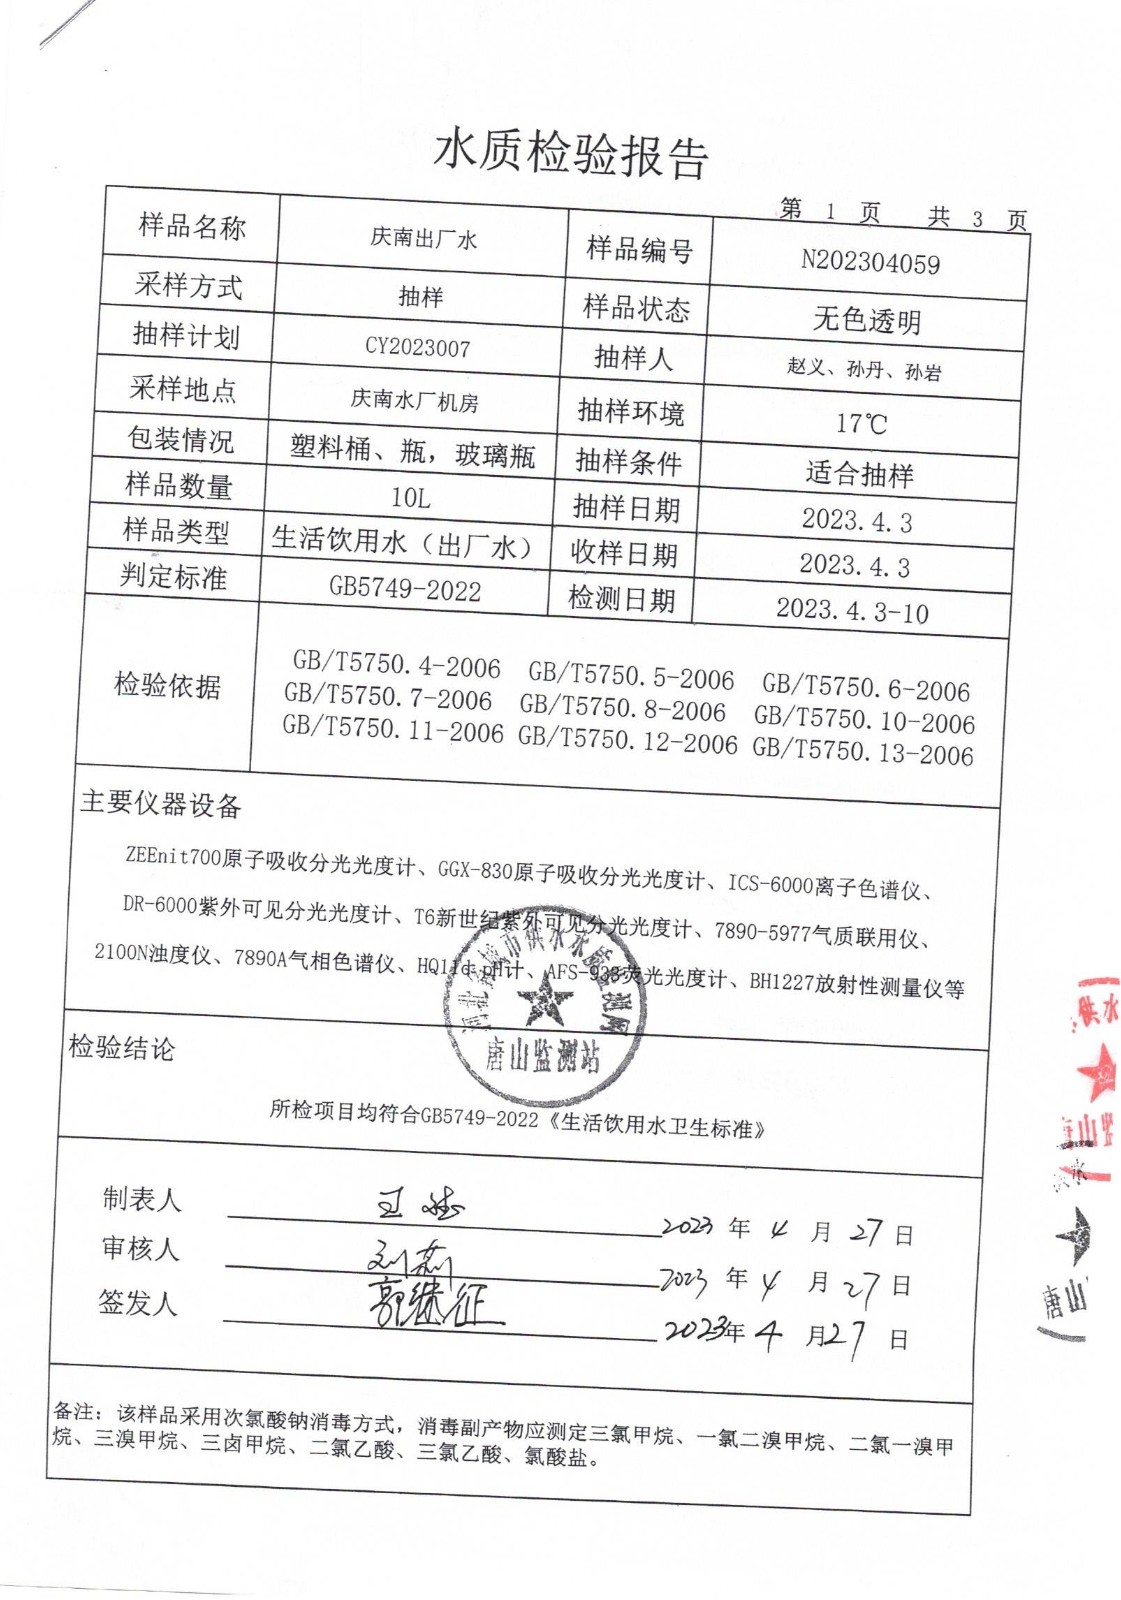 水质检验报告
第 1 页 共 3 页
样品名称 庆南出厂水 样品编号 N202304059
采样方式 抽样 样品状态 无色透明
抽样计划 CY2023007 抽样人 赵义、孙丹、孙岩
采样地点 庆南水厂机房 抽样环境 17℃
包装情况 塑料桶、瓶，玻璃瓶 抽样条件 适合抽样
样品数量 10L 抽样日期 2023.4.3
样品类型 生活饮用水（出厂水） 收样日期 2023.4.3
判定标准 GB5749-2022 检测日期 2023.4.3-10
检验依据
GB/T5750.4-2006 GB/T5750.5-2006 GB/T5750.6-2006
GB/T5750.7-2006 GB/T5750.8-2006 GB/T5750.10-2006
GB/T5750.11-2006 GB/T5750.12-2006 GB/T5750.13-2006
主要仪器设备
ZEEnit700原子吸收分光光度计、GGX-830原子吸收分光光度计、ICS-6000离子色谱仪、
DR-6000紫外可见分光光度计、T6新世纪紫外可见分光光度计、7890-5977气质联用仪、
2100N浊度仪、7890A气相色谱仪、HQ11d pH计、AFS-933荧光光度计、BH1227放射性测量仪等
河北省城市供水水质监测网
唐山监测站
检验结论
所检项目均符合GB5749-2022《生活饮用水卫生标准》
制表人 王 2023 年 4 月 27 日
审核人 刘莉 2023 年 4 月 27 日
签发人 郭继征 2023年 4 月27 日
备注：该样品采用次氯酸钠消毒方式，消毒副产物应测定三氯甲烷、一氯二溴甲烷、二氯一溴甲
烷、三溴甲烷、三卤甲烷、二氯乙酸、三氯乙酸、氯酸盐。
供水
唐山监
水
唐山